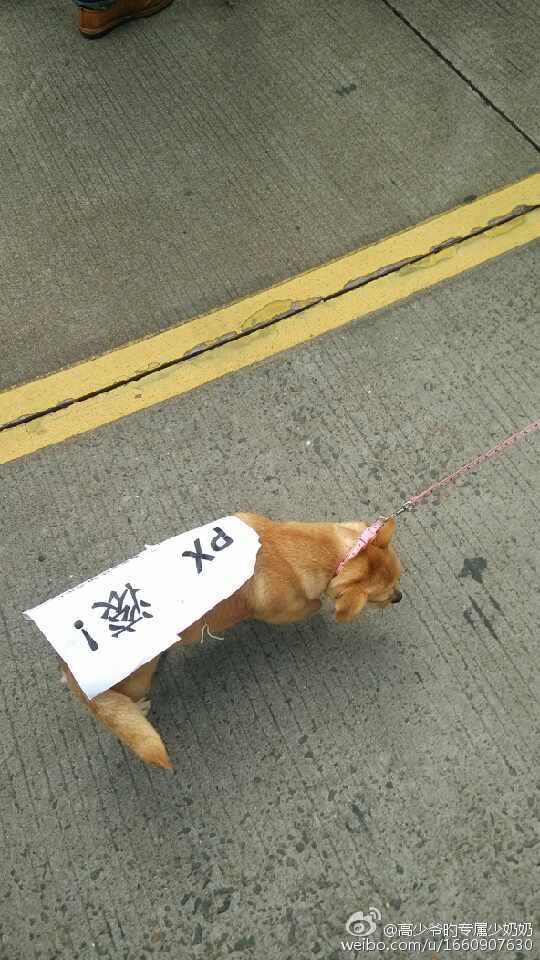 PX 滚！
@高少爷旳专属少奶奶
weibo.com/u/1660907630